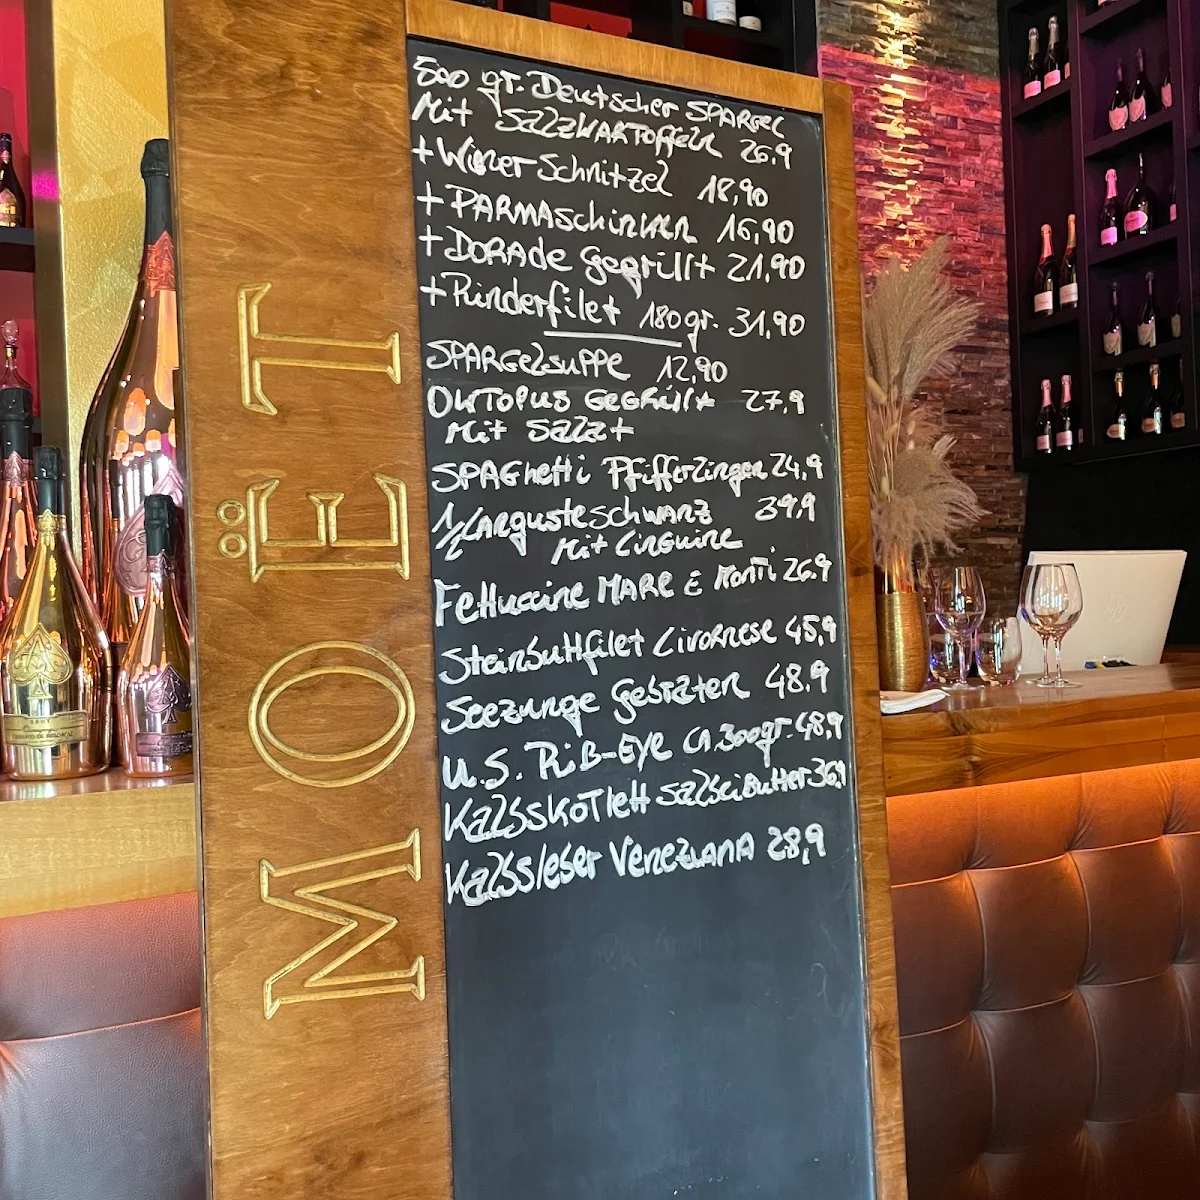 MOËT
500 gr. Deutscher SPARGEL
Mit SALZKARTOffELN 26.9
+ Wiener Schnitzel 18,90
+ PARMASchinken 16,90
+ DORADE Gegrillt 21,90
+ Rinderfilet 180gr. 31,90
SPARGELSUPPE 12,90
OKTOPUS GEGRillt 27,9
Mit Salat
SPAGhetti Pfifferlingen 24,9
1/2 Languste Schwarz 39,9
Mit Linguine
Fettuccine MARE E Monti 26.9
Steinbuttfilet Livornese 45,9
Seezunge Gebraten 48.9
U.S. RiB-EYE CA. 300gr. 48,9
Kalbskotlett SalbeiButter 36,9
Kalbsleber VENEZIANA 28,9